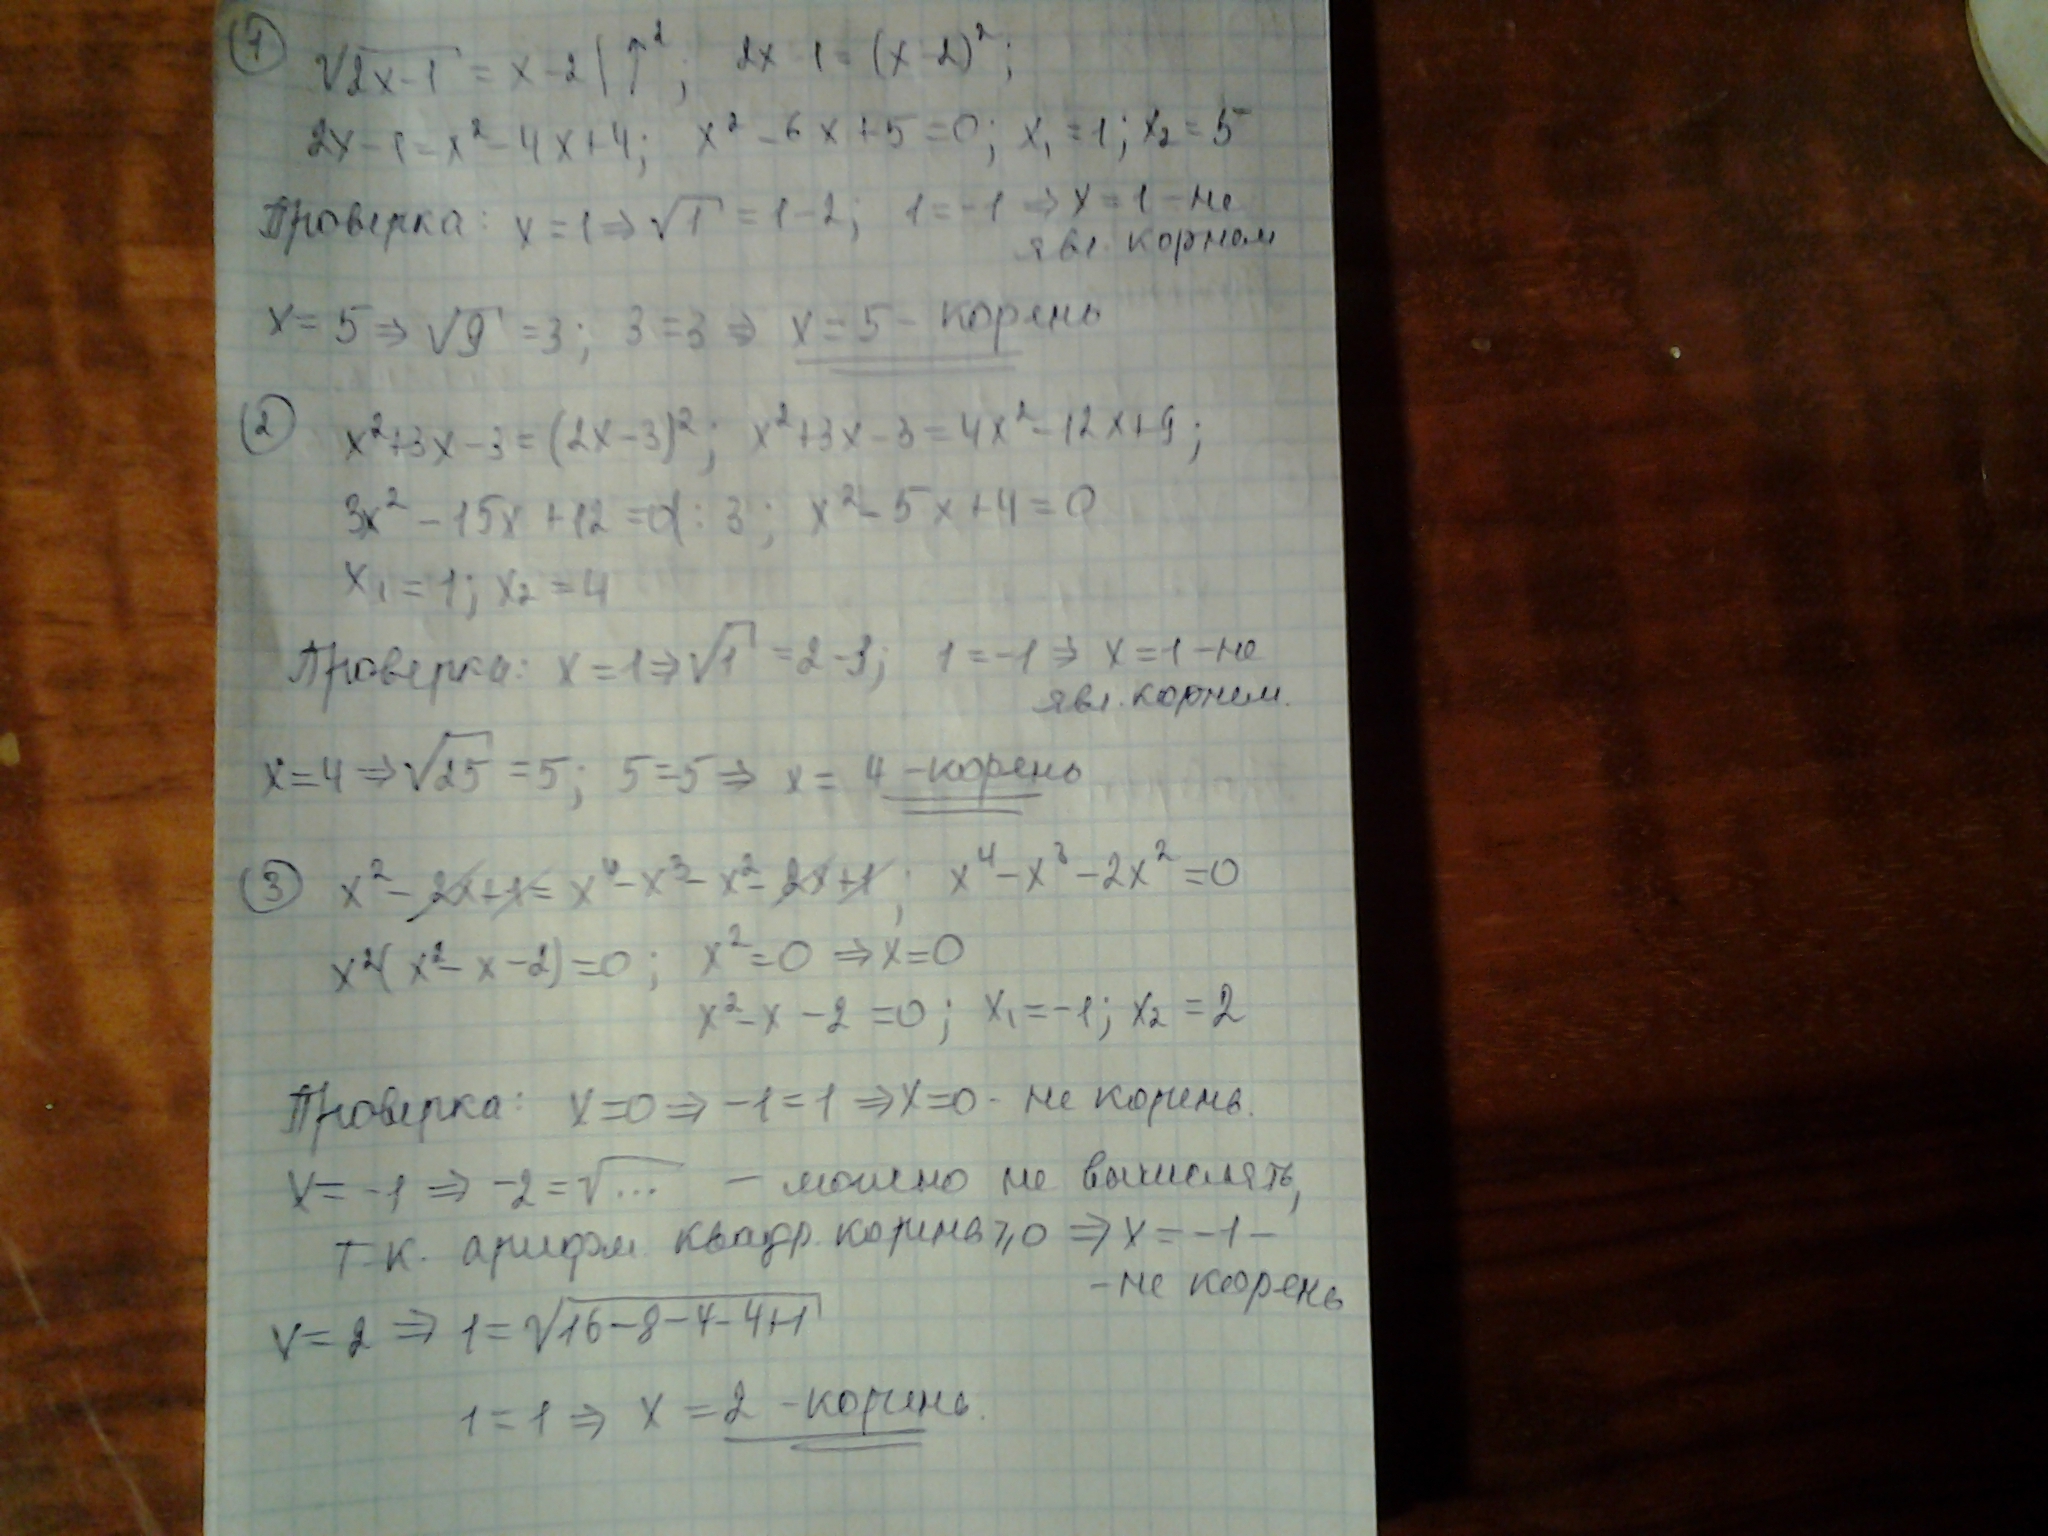 ① √(2x-1) = x-2 | ↑²; 2x-1 = (x-2)²;
2x-1 = x²-4x+4; x²-6x+5=0; x₁=1; x₂=5
Проверка: x=1 ⇒ √1 = 1-2; 1=-1 ⇒ x=1 - не
явл. корнем
x=5 ⇒ √9 = 3; 3=3 ⇒ x=5 - корень
② x²+3x-3=(2x-3)²; x²+3x-3=4x²-12x+9;
3x²-15x+12=0|:3; x²-5x+4=0
x₁=1; x₂=4
Проверка: x=1 ⇒ √1 = 2-3; 1=-1 ⇒ x=1 - не
явл. корнем.
x=4 ⇒ √25 = 5; 5=5 ⇒ x= 4 - корень
③ x²-2x+1=x⁴-x³-x²-2x+1; x⁴-x³-2x²=0
x²(x²-x-2)=0; x²=0 ⇒ x=0
x²-x-2=0; x₁=-1; x₂=2
Проверка: x=0 ⇒ -1=1 ⇒ x=0 - не корень.
x=-1 ⇒ -2=√... - можно не вычислять,
т.к. арифм. квадр. корень ≥0 ⇒ x=-1-
-не корень
x=2 ⇒ 1=√(16-8-4-4+1)
1=1 ⇒ x=2 - корень.